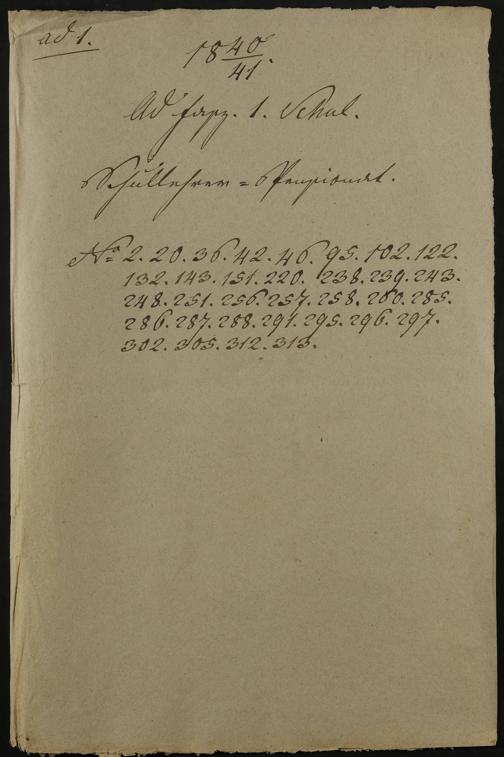 ad 1.
1840/41.
Ad fasz. 1. Schul.
Schullehrer = Pensionat.
No 2. 20. 36. 42. 46. 95. 102. 122.
132. 143. 151. 220. 238. 239. 243.
248. 251. 256. 257. 258. 260. 285.
286. 287. 288. 291. 295. 296. 297.
302. 305. 312. 313.